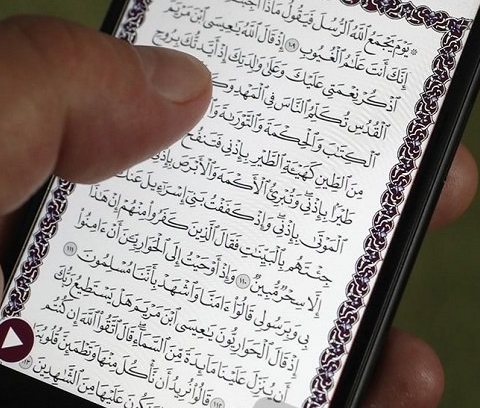 ۞ يَوْمَ يَجْمَعُ ٱللَّهُ ٱلرُّسُلَ فَيَقُولُ مَاذَآ
إِنَّكَ أَنتَ عَلَّٰمُ ٱلْغُيُوبِ ١٠٩ إِذْ قَالَ ٱللَّهُ يَٰعِيسَى ٱبْنَ مَرْيَمَ
ٱذْكُرْ نِعْمَتِى عَلَيْكَ وَعَلَىٰ وَٰلِدَتِكَ إِذْ أَيَّدتُّكَ بِرُوحِ
ٱلْقُدُسِ تُكَلِّمُ ٱلنَّاسَ فِى ٱلْمَهْدِ
ٱلْكِتَٰبَ وَٱلْحِكْمَةَ وَٱلتَّوْرَىٰةَ
مِنَ ٱلطِّينِ كَهَيْـَٔةِ ٱلطَّيْرِ بِإِذْنِى فَتَنفُخُ
طَيْرًۢا بِإِذْنِى وَتُبْرِئُ ٱلْأَكْمَهَ وَٱلْأَبْرَصَ بِإِذْنِى
ٱلْمَوْتَىٰ بِإِذْنِى وَإِذْ كَفَفْتُ بَنِىٓ إِسْرَٰٓءِيلَ عَنكَ
جِئْتَهُم بِٱلْبَيِّنَٰتِ فَقَالَ ٱلَّذِينَ كَفَرُوا۟ مِنْهُمْ إِنْ هَٰذَآ
إِلَّا سِحْرٌ مُّبِينٌ ١١٠ وَإِذْ أَوْحَيْتُ إِلَى ٱلْحَوَارِيِّـۧنَ أَنْ ءَامِنُوا۟
بِى وَبِرَسُولِى قَالُوٓا۟ ءَامَنَّا وَٱشْهَدْ بِأَنَّنَا مُسْلِمُونَ ١١١
إِذْ قَالَ ٱلْحَوَارِيُّونَ يَٰعِيسَى ٱبْنَ مَرْيَمَ هَلْ يَسْتَطِيعُ رَبُّكَ
أَن يُنَزِّلَ عَلَيْنَا مَآئِدَةً مِّنَ ٱلسَّمَآءِ قَالَ ٱتَّقُوا۟ ٱللَّهَ إِن كُنتُم
١١٢ قَالُوا۟ نُرِيدُ أَن نَّأْكُلَ مِنْهَا وَتَطْمَئِنَّ قُلُوبُنَا
عَلَيْهَا مِنَ ٱلشَّٰهِدِينَ ١١٣